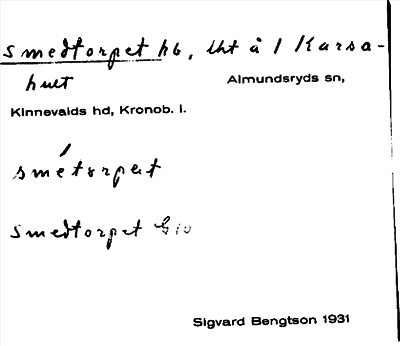 smedtorpet hb, lht å 1 Karsa-
hult Almundsryds sn,
Kinnevalds hd, Kronob. l.
smétorpet
smedtorpet
Sigvard Bengtson 1931